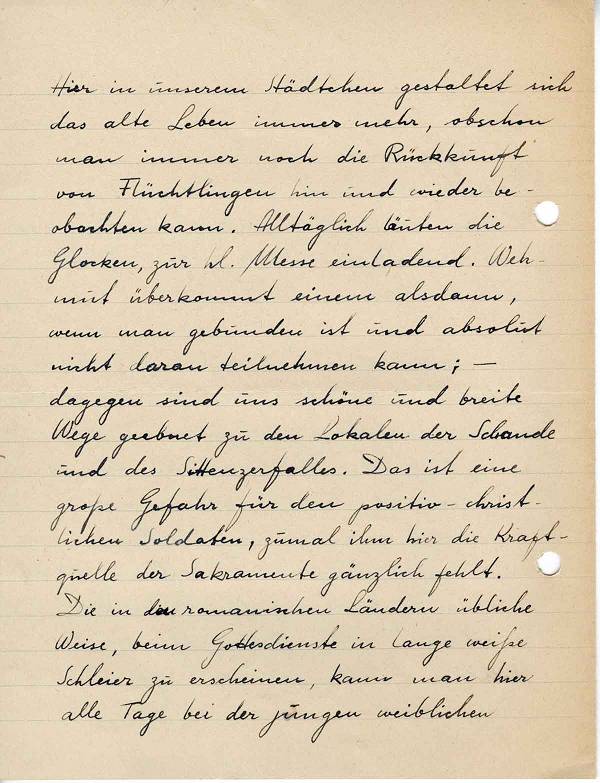 Hier in unserem Städtchen gestaltet sich
das alte Leben immer mehr, obschon
man immer noch die Rückkunft
von Flüchtlingen hin und wieder be-
obachten kann. Alltäglich läuten die
Glocken, zur hl. Messe einladend. Weh-
mut überkommt einem alsdann,
wenn man gebunden ist und absolut
nicht daran teilnehmen kann; —
dagegen sind uns schöne und breite
Wege geebnet zu den Lokalen der Schande
und des Sittenzerfalles. Das ist eine
große Gefahr für den positiv-christ-
lichen Soldaten, zumal ihm hier die Kraft-
quelle der Sakramente gänzlich fehlt.
Die in den romanischen Ländern übliche
Weise, beim Gottesdienste in lange weiße
Schleier zu erscheinen, kann man hier
alle Tage bei der jungen weiblichen